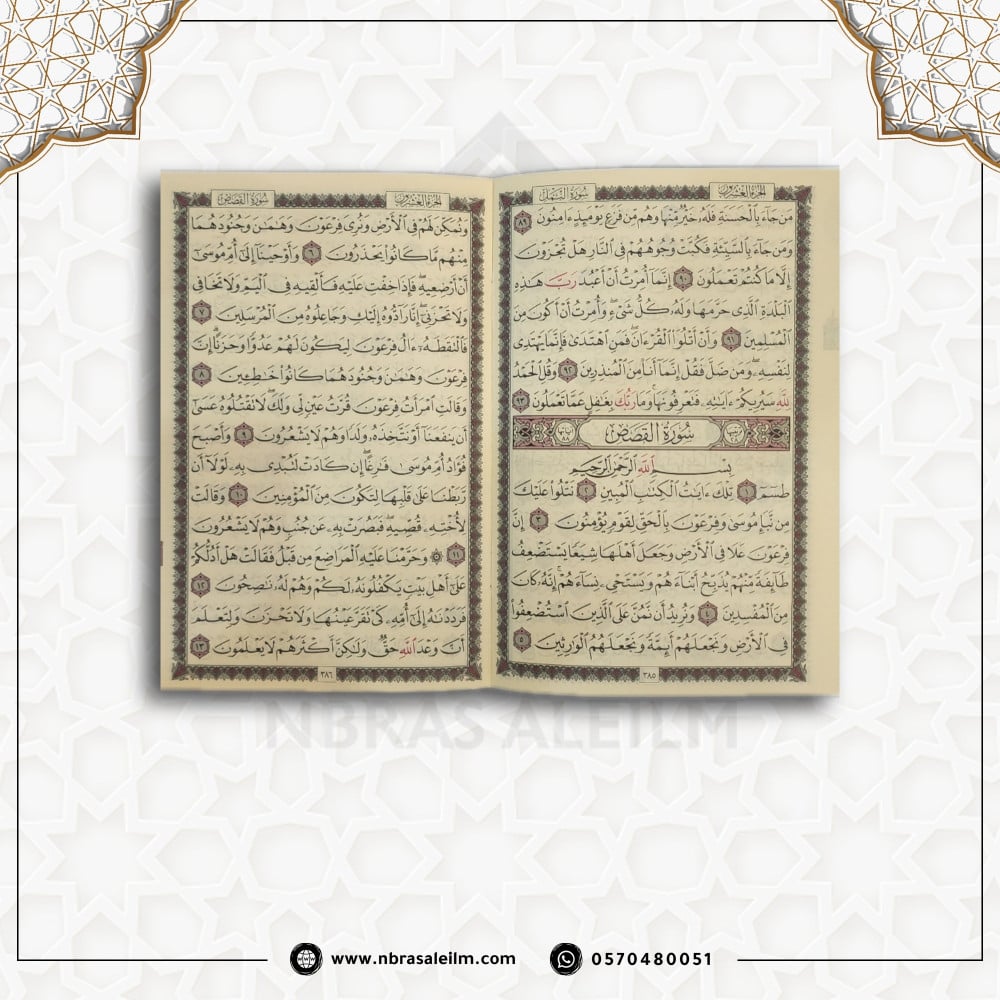 الجزء العشرون
سورة النمل
مَن جَآءَ بِٱلْحَسَنَةِ فَلَهُۥ خَيْرٌ مِّنْهَا وَهُم مِّن فَزَعٍ يَوْمَئِذٍ ءَامِنُونَ ٨٩
وَمَن جَآءَ بِٱلسَّيِّئَةِ فَكُبَّتْ وُجُوهُهُمْ فِى ٱلنَّارِ هَلْ تُجْزَوْنَ
إِلَّا مَا كُنتُمْ تَعْمَلُونَ ٩٠ إِنَّمَآ أُمِرْتُ أَنْ أَعْبُدَ رَبَّ هَٰذِهِ
ٱلْبَلْدَةِ ٱلَّذِى حَرَّمَهَا وَلَهُۥ كُلُّ شَىْءٍ ۖ وَأُمِرْتُ أَنْ أَكُونَ مِنَ
ٱلْمُسْلِمِينَ ٩١ وَأَنْ أَتْلُوَا۟ ٱلْقُرْءَانَ ۖ فَمَنِ ٱهْتَدَىٰ فَإِنَّمَا يَهْتَدِى
لِنَفْسِهِۦ ۖ وَمَن ضَلَّ فَقُلْ إِنَّمَآ أَنَا۠ مِنَ ٱلْمُنذِرِينَ ٩٢ وَقُلِ ٱلْحَمْدُ
لِلَّهِ سَيُرِيكُمْ ءَايَٰتِهِۦ فَتَعْرِفُونَهَا ۚ وَمَا رَبُّكَ بِغَٰفِلٍ عَمَّا تَعْمَلُونَ ٩٣
سُورَةُ القَصَصِ
بِسْمِ ٱللَّهِ ٱلرَّحْمَٰنِ ٱلرَّحِيمِ
طسٓمٓ ١ تِلْكَ ءَايَٰتُ ٱلْكِتَٰبِ ٱلْمُبِينِ ٢ نَتْلُوا۟ عَلَيْكَ
مِن نَّبَإِ مُوسَىٰ وَفِرْعَوْنَ بِٱلْحَقِّ لِقَوْمٍ يُؤْمِنُونَ ٣ إِنَّ
فِرْعَوْنَ عَلَا فِى ٱلْأَرْضِ وَجَعَلَ أَهْلَهَا شِيَعًا يَسْتَضْعِفُ
طَآئِفَةً مِّنْهُمْ يُذَبِّحُ أَبْنَآءَهُمْ وَيَسْتَحْىِۦ نِسَآءَهُمْ ۚ إِنَّهُۥ كَانَ
مِنَ ٱلْمُفْسِدِينَ ٤ وَنُرِيدُ أَن نَّمُنَّ عَلَى ٱلَّذِينَ ٱسْتُضْعِفُوا۟
فِى ٱلْأَرْضِ وَنَجْعَلَهُمْ أَئِمَّةً وَنَجْعَلَهُمُ ٱلْوَٰرِثِينَ ٥
٣٨٥
الجزء العشرون
سورة القصص
وَنُمَكِّنَ لَهُمْ فِى ٱلْأَرْضِ وَنُرِىَ فِرْعَوْنَ وَهَٰمَٰنَ وَجُنُودَهُمَا
مِنْهُم مَّا كَانُوا۟ يَحْذَرُونَ ٦ وَأَوْحَيْنَآ إِلَىٰٓ أُمِّ مُوسَىٰٓ
أَنْ أَرْضِعِيهِ ۖ فَإِذَا خِفْتِ عَلَيْهِ فَأَلْقِيهِ فِى ٱلْيَمِّ وَلَا تَخَافِى
وَلَا تَحْزَنِىٓ ۖ إِنَّا رَآدُّوهُ إِلَيْكِ وَجَاعِلُوهُ مِنَ ٱلْمُرْسَلِينَ ٧
فَٱلْتَقَطَهُۥٓ ءَالُ فِرْعَوْنَ لِيَكُونَ لَهُمْ عَدُوًّا وَحَزَنًا ۗ إِنَّ
فِرْعَوْنَ وَهَٰمَٰنَ وَجُنُودَهُمَا كَانُوا۟ خَٰطِـِٔينَ ٨
وَقَالَتِ ٱمْرَأَتُ فِرْعَوْنَ قُرَّتُ عَيْنٍ لِّى وَلَكَ ۖ لَا تَقْتُلُوهُ عَسَىٰٓ
أَن يَنفَعَنَآ أَوْ نَتَّخِذَهُۥ وَلَدًا وَهُمْ لَا يَشْعُرُونَ ٩ وَأَصْبَحَ
فُؤَادُ أُمِّ مُوسَىٰ فَٰرِغًا ۖ إِن كَادَتْ لَتُبْدِى بِهِۦ لَوْلَآ أَن
رَّبَطْنَا عَلَىٰ قَلْبِهَا لِتَكُونَ مِنَ ٱلْمُؤْمِنِينَ ١٠ وَقَالَتْ
لِأُخْتِهِۦ قُصِّيهِ ۖ فَبَصُرَتْ بِهِۦ عَن جُنُبٍ وَهُمْ لَا يَشْعُرُونَ
١١ ۞ وَحَرَّمْنَا عَلَيْهِ ٱلْمَرَاضِعَ مِن قَبْلُ فَقَالَتْ هَلْ أَدُلُّكُمْ
عَلَىٰٓ أَهْلِ بَيْتٍ يَكْفُلُونَهُۥ لَكُمْ وَهُمْ لَهُۥ نَٰصِحُونَ ١٢
فَرَدَدْنَٰهُ إِلَىٰٓ أُمِّهِۦ كَىْ تَقَرَّ عَيْنُهَا وَلَا تَحْزَنَ وَلِتَعْلَمَ
أَنَّ وَعْدَ ٱللَّهِ حَقٌّ وَلَٰكِنَّ أَكْثَرَهُمْ لَا يَعْلَمُونَ ١٣
٣٨٦
NBRAS ALEILM
www.nbrasaleilm.com
0570480051